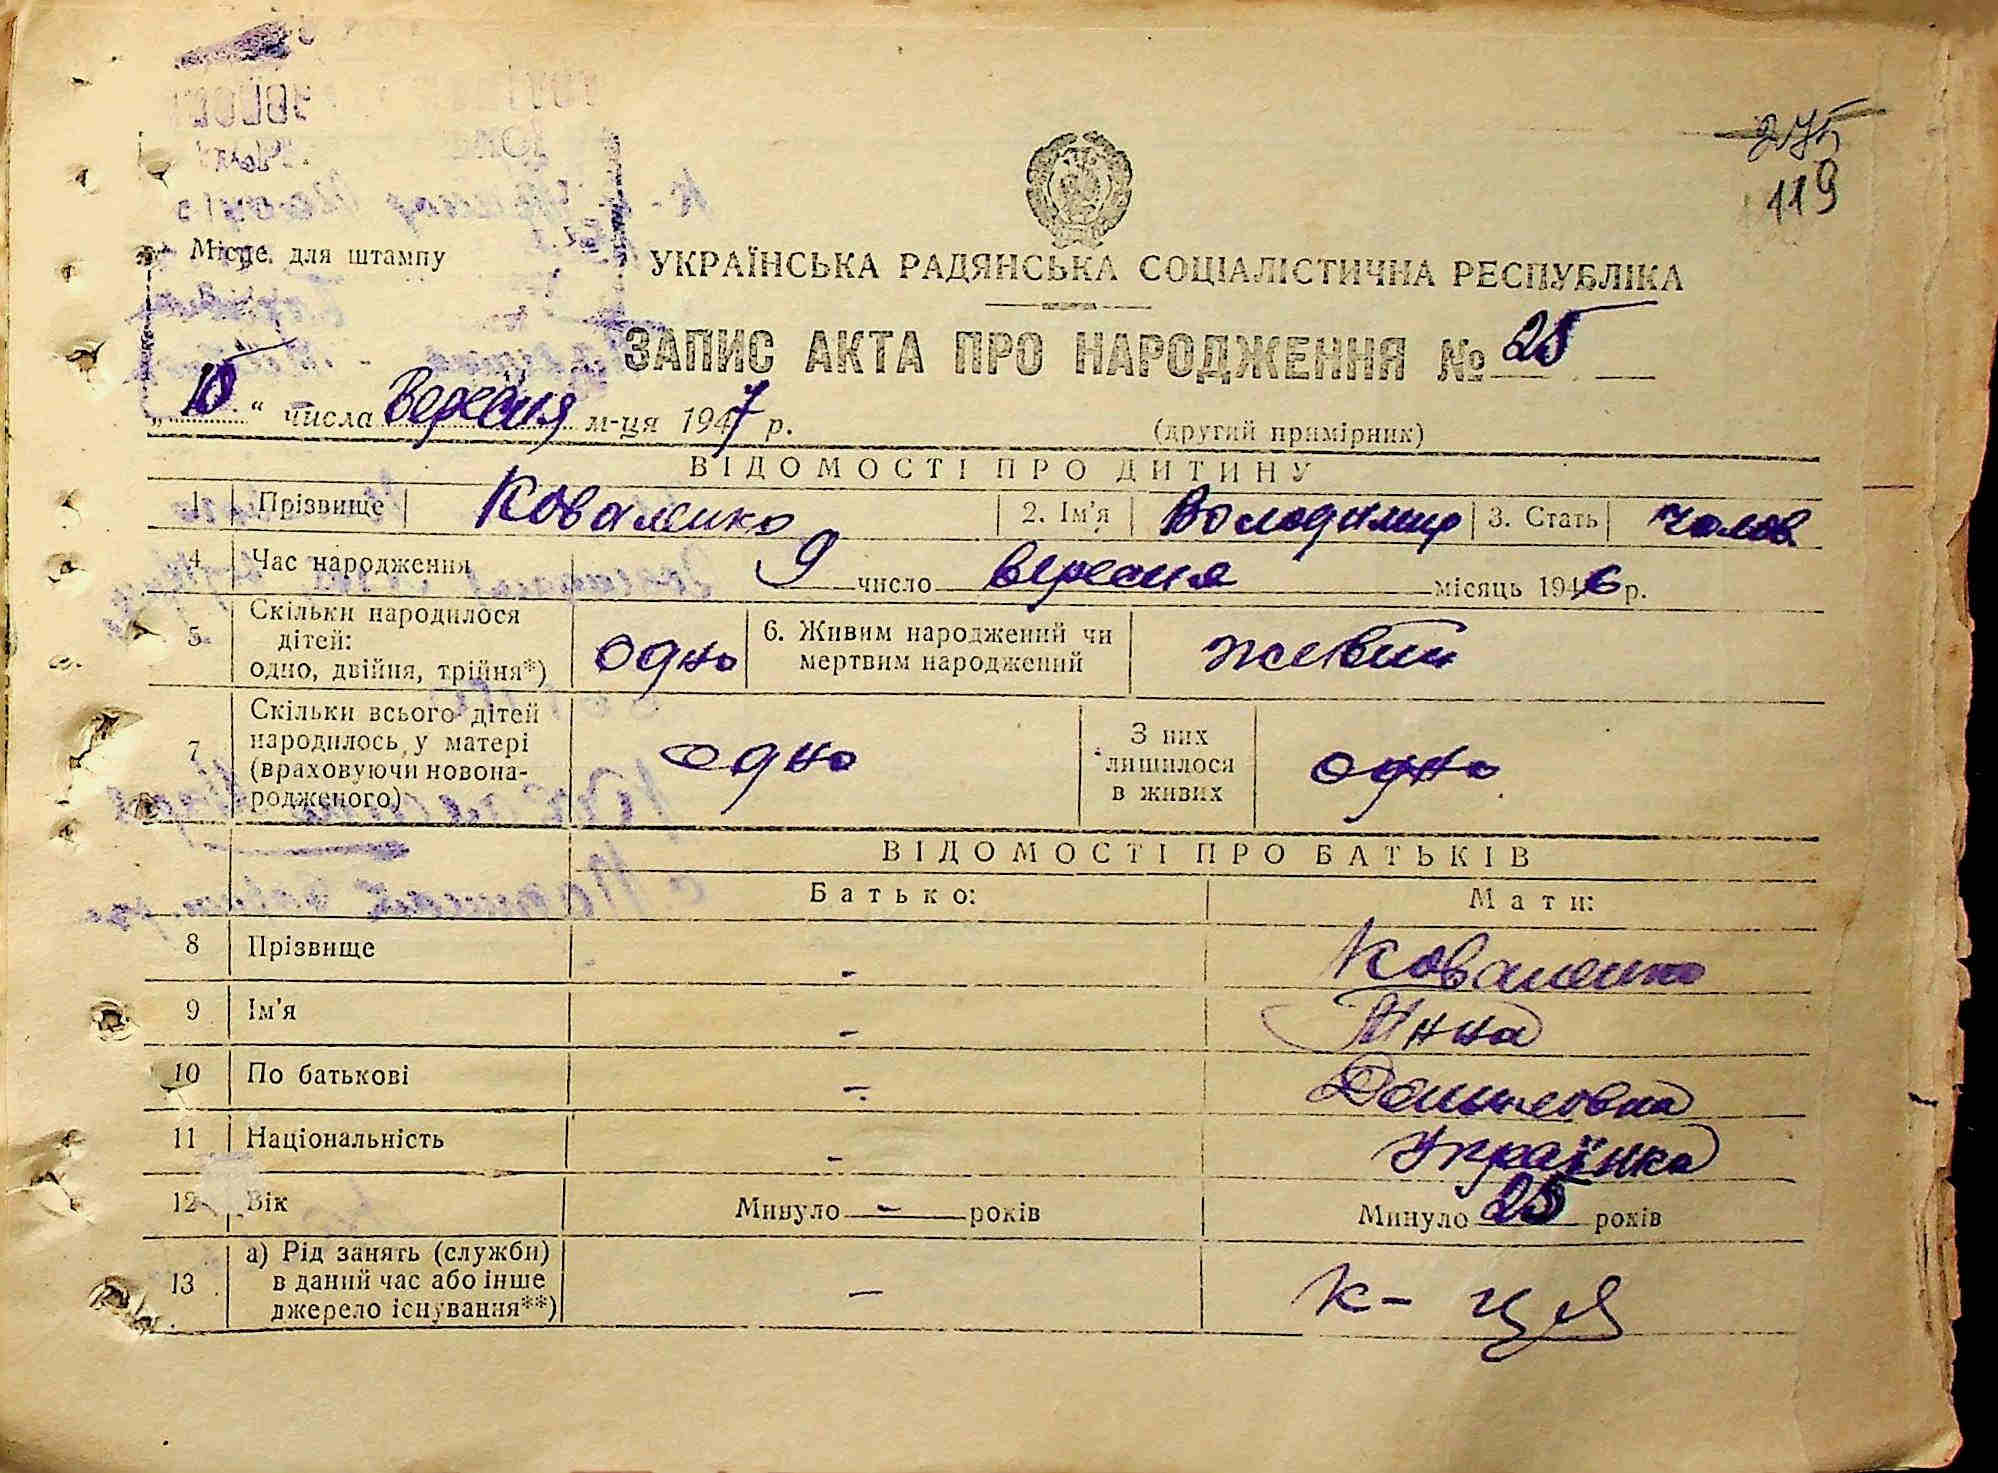 275
119
Місце для штампу
УКРАЇНСЬКА РАДЯНСЬКА СОЦІАЛІСТИЧНА РЕСПУБЛІКА
ЗАПИС АКТА ПРО НАРОДЖЕННЯ № 25
„ 10 “ числа Вересня м-ця 1947 р.
(другий примірник)
ВІДОМОСТІ ПРО ДИТИНУ
1 Прізвище Коваленко 2. Ім'я Володимир 3. Стать чолов.
4 Час народження 9 число вересня місяць 1946 р.
5 Скільки народилося дітей: одно, двійня, трійня*) одно 6. Живим народжений чи мертвим народжений живий
7 Скільки всього дітей народилось у матері (враховуючи новонародженого) одно З них лишилося в живих одно
ВІДОМОСТІ ПРО БАТЬКІВ
Батько: Мати:
8 Прізвище - Коваленко
9 Ім'я - Инна
10 По батькові -
11 Національність - Українка
12 Вік Минуло - років Минуло 25 років
13 а) Рід занять (служби) в даний час або інше джерело існування**) — к-ця